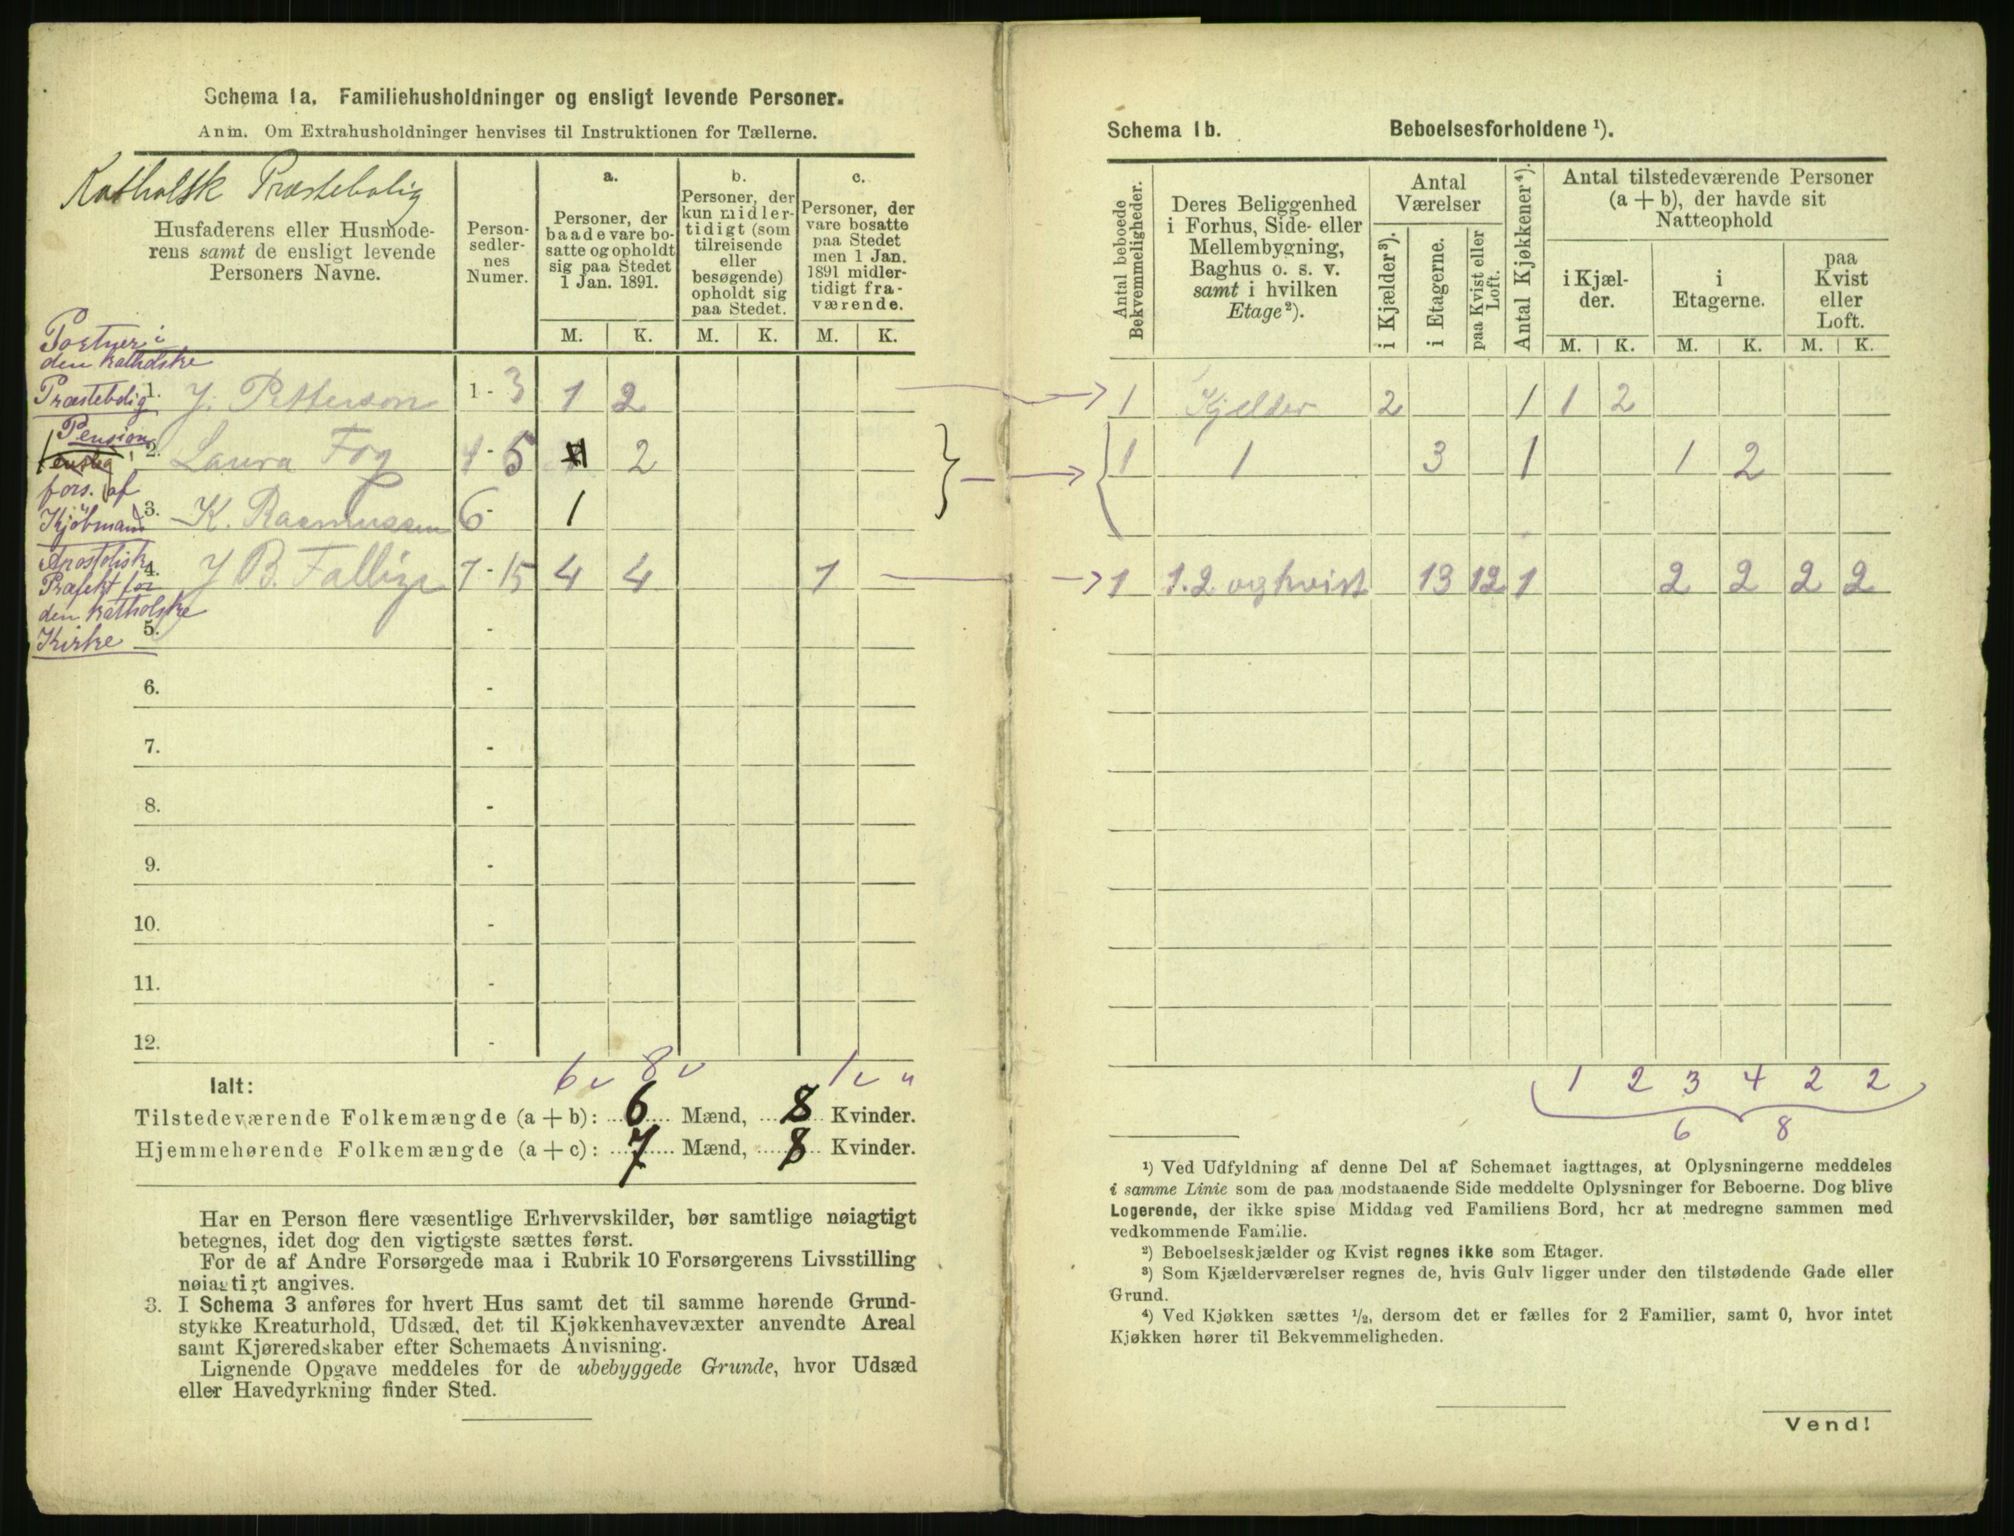 Schema 1a. Familiehusholdninger og ensligt levende Personer.
Anm. Om Extrahusholdninger henvises til Instruktionen for Tællerne.
Katholsk Præstebolig
Husfaderens eller Husmode-
rens samt de ensligt levende
Personers Navne.
Person-
sedler-
nes
Numer.
a.
Personer, der
baade vare bo-
satte og opholdt
sig paa Stedet
1 Jan. 1891.
b.
Personer, der
kun midler-
tidigt (som
tilreisende
eller
besøgende)
opholdt sig
paa Stedet.
c.
Personer, der
vare bosatte
paa Stedet
men 1 Jan.
1891 midler-
tidigt fra-
værende.
M. K. M. K. M. K.
Portner i
den katholske
Præstebolig
1. J. Petterson 1 - 3 1 2
Pension
enslig
2. Laura Fog 4 - 5 2
fors. af
Kjøbmand
3. K. Rasmussen 6 - 1
Apostolisk
Præfekt for
den katholske
Kirke
4. J B. Fallize 7 - 15 4 4 1
5. -
6. -
7. -
8. -
9. -
10. -
11. -
12. -
6 8 1 "
Ialt:
Tilstedeværende Folkemængde (a + b): 6 Mænd, 8 Kvinder.
Hjemmehørende Folkemængde (a + c): 7 Mænd, 8 Kvinder.
Har en Person flere væsentlige Erhvervskilder, bør samtlige nøiagtigt
betegnes, idet dog den vigtigste sættes først.
For de af Andre Forsørgede maa i Rubrik 10 Forsørgerens Livsstilling
nøiagtigt angives.
3. I Schema 3 anføres for hvert Hus samt det til samme hørende Grund-
stykke Kreaturhold, Udsæd, det til Kjøkkenhavevæxter anvendte Areal
samt Kjøreredskaber efter Schemaets Anvisning.
Lignende Opgave meddeles for de ubebyggede Grunde, hvor Udsæd
eller Havedyrkning finder Sted.
Schema 1b. Beboelsesforholdene ¹).
Antal beboede
Bekvemmeligheder.
Deres Beliggenhed
i Forhus, Side- eller
Mellembygning,
Baghus o. s. v.
samt i hvilken
Etage²).
Antal
Værelser
i Kjælder³).
i Etagerne.
paa Kvist eller
Loft.
Antal Kjøkkener⁴).
Antal tilstedeværende Personer
(a + b), der havde sit
Natteophold
i Kjæl-
der.
i
Etagerne.
paa
Kvist
eller
Loft.
M. K. M. K. M. K.
1 Kjelder 2 1 1 2
1 1 3 1 1 2
1 1. 2 og kvist 13 12 1 2 2 2 2
1 2 3 4 2 2
6 8
¹) Ved Udfyldning af denne Del af Schemaet iagttages, at Oplysningerne meddeles
i samme Linie som de paa modstaaende Side meddelte Oplysninger for Beboerne. Dog blive
Logerende, der ikke spise Middag ved Familiens Bord, her at medregne sammen med
vedkommende Familie.
²) Beboelseskjælder og Kvist regnes ikke som Etager.
³) Som Kjælderværelser regnes de, hvis Gulv ligger under den tilstødende Gade eller
Grund.
⁴) Ved Kjøkken sættes ½, dersom det er fælles for 2 Familier, samt 0, hvor intet
Kjøkken hører til Bekvemmeligheden.
Vend!